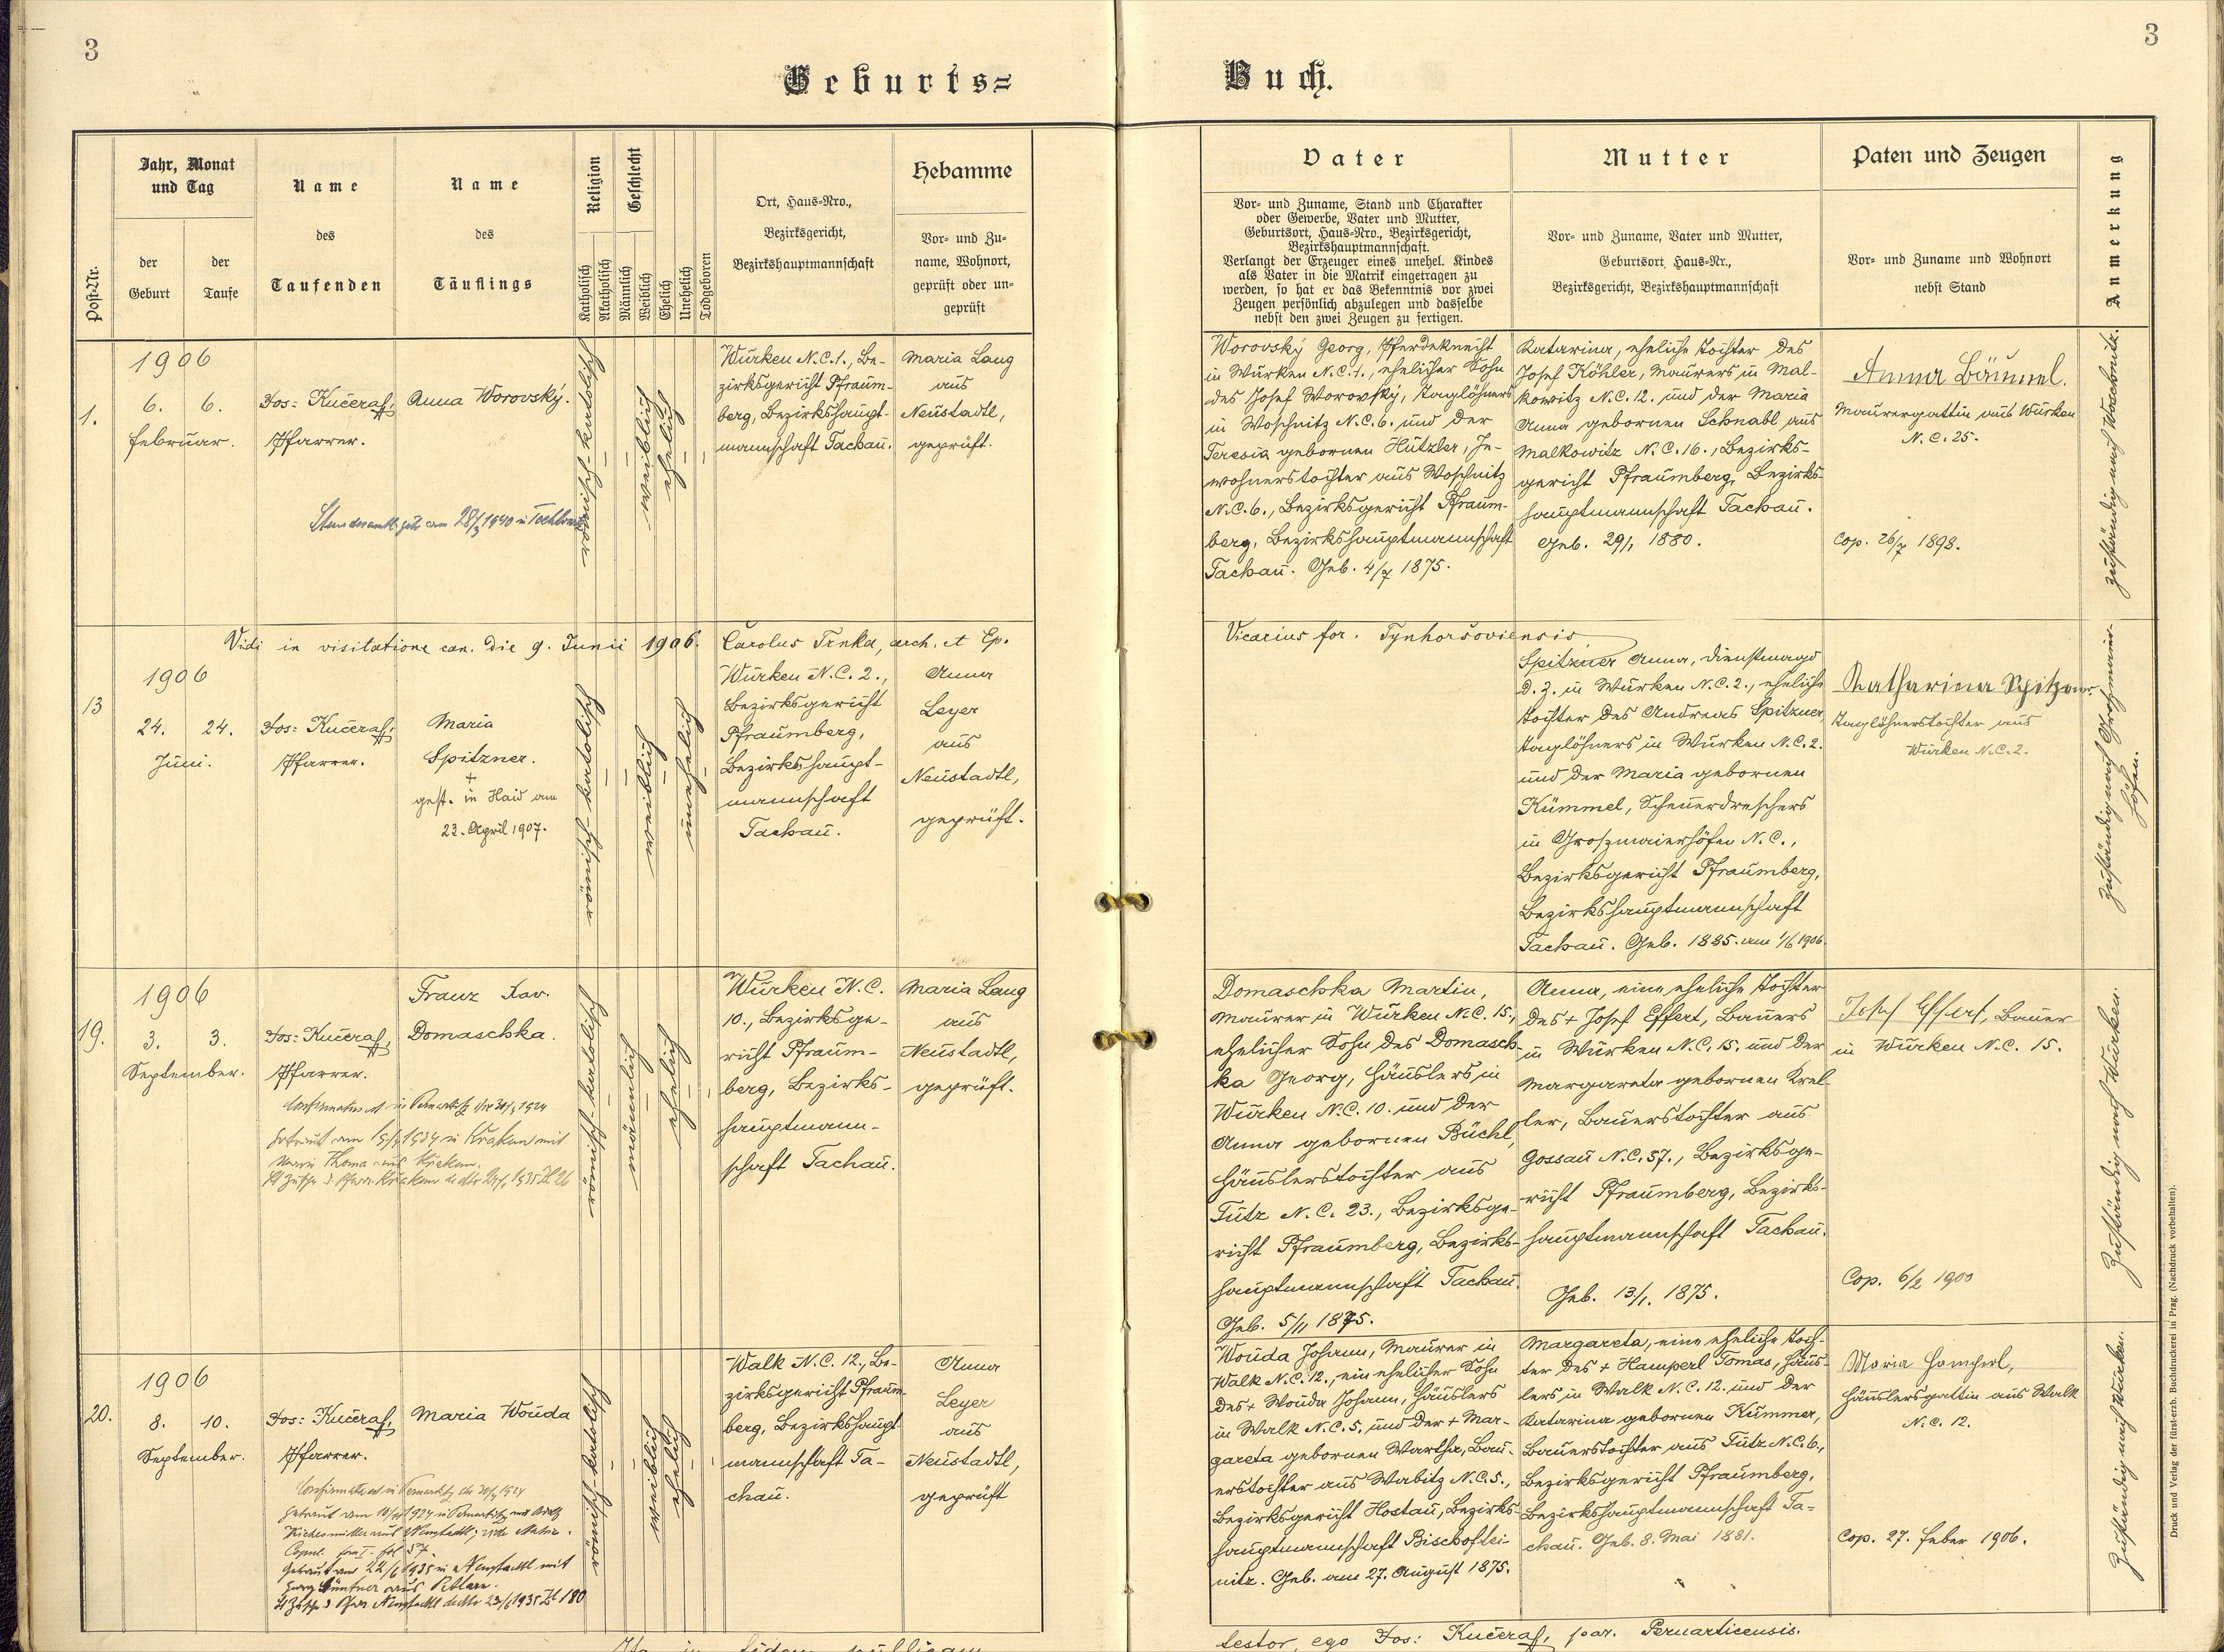 3
3
Geburts=
Buch.
Post-Nr.
Jahr, Monat
und Tag
der
Geburt
der
Taufe
Name
des
Taufenden
Name
des
Täuflings
Religion
Katholisch
Akatholisch
Geschlecht
Männlich
Weiblich
Ehelich
Unehelich
Todgeboren
Ort, Haus-Nro.,
Bezirksgericht,
Bezirkshauptmannschaft
Hebamme
Vor- und Zu-
name, Wohnort,
geprüft oder un-
geprüft
Vater
Vor- und Zuname, Stand und Charakter
oder Gewerbe, Vater und Mutter,
Geburtsort, Haus-Nro., Bezirksgericht,
Bezirkshauptmannschaft.
Verlangt der Erzeuger eines unehel. Kindes
als Vater in die Matrik eingetragen zu
werden, so hat er das Bekenntnis vor zwei
Zeugen persönlich abzulegen und dasselbe
nebst den zwei Zeugen zu fertigen.
Mutter
Vor- und Zuname, Vater und Mutter,
Geburtsort, Haus-Nr.,
Bezirksgericht, Bezirkshauptmannschaft
Paten und Zeugen
Vor- und Zuname und Wohnort
nebst Stand
Anmerkung
1.
1906
6. 6.
Februar.
Jos: Kučera,
Pfarrer.
Anna Worovský.
am 28/3 1940 in
römisch-katolisch
weiblich
ehelich
Würken N.C.1., Be-
zirksgericht Pfraum-
berg, Bezirkshaupt-
mannschaft Tachau.
Maria Lang
aus
Neustadtl,
geprüft.
Worovský Georg, Pferdeknecht
in Würken N.C.1., ehelicher Sohn
des Josef Worovský, Taglöhners
in Woschnitz N.C.6. und der
Teresia gebornen Hützler, In-
wohnerstochter aus Woschnitz
N.C.6., Bezirksgericht Pfraum-
berg, Bezirkshauptmannschaft
Tachau. Geb. 4/7 1875.
Katarina, eheliche Tochter des
Josef Köhler, Maurers in Mal-
kowitz N.C.12. und der Maria
Anna gebornen Schnabl aus
Malkowitz N.C.16., Bezirks-
gericht Pfraumberg, Bezirks-
hauptmannschaft Tachau.
Geb. 29/1 1880.
Anna Bäuml.
Maurergattin aus Würken
N.C.25.
Cop. 26/7 1898.
zuständig nach Woschnitz.
Vidi in visitatione can. die 9. Junii 1906. Carolus Trnka, arch. et Ep.
Vicarius for. Tynhoršoviensis
13
1906
24. 24.
Juni.
Jos: Kučera,
Pfarrer.
Maria
Spitzner.
+
gest. in Haid am
22. April 1907.
römisch-katolisch
weiblich
unehelich
Würken N.C.2.,
Bezirksgericht
Pfraumberg,
Bezirkshaupt-
mannschaft
Tachau.
Anna
Leyer
aus
Neustadtl,
geprüft.
Spitzner Anna, Dienstmagd
d.Z. in Würken N.C.2., eheliche
Tochter des Andreas Spitzner,
Taglöhners in Würken N.C.2.
und der Maria gebornen
Kümmel, Scheuerdreschers
in Groszmaierhöfen N.C.,
Bezirksgericht Pfraumberg,
Bezirkshauptmannschaft
Tachau. Geb. 1885. am 1/6 1906.
Katharina Spitzner.
Taglöhnerstochter aus
Würken N.C.2.
zuständig nach Groszmaier-
höfen.
19.
1906
3. 3.
September.
Jos: Kučera,
Pfarrer.
Franz Xav.
Domaschka.
1924
Getraut am 1934 in Kraken mit
Maria Thoma aus
römisch-katolisch
männlich
ehelich
Würken N.C.
10., Bezirksge-
richt Pfraum-
berg, Bezirks-
hauptmann-
schaft Tachau.
Maria Lang
aus
Neustadtl,
geprüft.
Domaschka Martin,
Maurer in Würken N.C.15.,
ehelicher Sohn des Domasch-
ka Georg, Häuslers in
Würken N.C.10. und der
Anna gebornen Büchl,
Häuslerstochter aus
Tutz N.C.23., Bezirksge-
richt Pfraumberg, Bezirks-
hauptmannschaft Tachau.
Geb. 5/11 1875.
Anna, eine eheliche Tochter
des + Josef Effert, Bauers
in Würken N.C.15. und der
Margareta gebornen Krel-
ler, Bauerstochter aus
Gossau N.C.57., Bezirksge-
richt Pfraumberg, Bezirks-
hauptmannschaft Tachau.
Geb. 13/1. 1875.
Josef Effert, Bauer
in Würken N.C. 15.
Cop. 6/2 1900
Zuständig nach Würken.
20.
1906
8. 10.
September.
Jos: Kučera,
Pfarrer.
Maria Wouda
1924
Getraut am 1924 in
Getraut am 22/6 1935 in Neustadtl mit
Georg Güntner aus
römisch-katolisch
weiblich
ehelich
Walk N.C.12., Be-
zirksgericht Pfraum-
berg, Bezirkshaupt-
mannschaft Ta-
chau.
Anna
Leyer
aus
Neustadtl,
geprüft
Wouda Johann, Maurer in
Walk N.C.12., ein ehelicher Sohn
des + Wouda Johann, Häuslers
in Walk N.C.5. und der + Mar-
gareta gebornen Wartha, Bau-
erstochter aus Wabitz N.C.5.,
Bezirksgericht Hostau, Bezirks-
hauptmannschaft Bischoftei-
nitz. Geb. am 27. August 1875.
Margareta, eine eheliche Toch-
ter des + Hamperl Tomas, Häus-
lers in Walk N.C.12. und der
Katarina gebornen Kümmer,
Bauerstochter aus Tutz N.C.6.,
Bezirksgericht Pfraumberg,
Bezirkshauptmannschaft Ta-
chau. Geb. 8. Mai 1881.
Maria Hamperl,
Häuslersgattin aus Walk
N.C. 12.
Cop. 27. Feber 1906.
Zuständig nach Würken.
Ita in fidem publicam
testor, ego Jos: Kučera, par. Pernarticensis.
Druck und Verlag der fürst-erzb. Buchdruckerei in Prag. (Nachdruck vorbehalten).